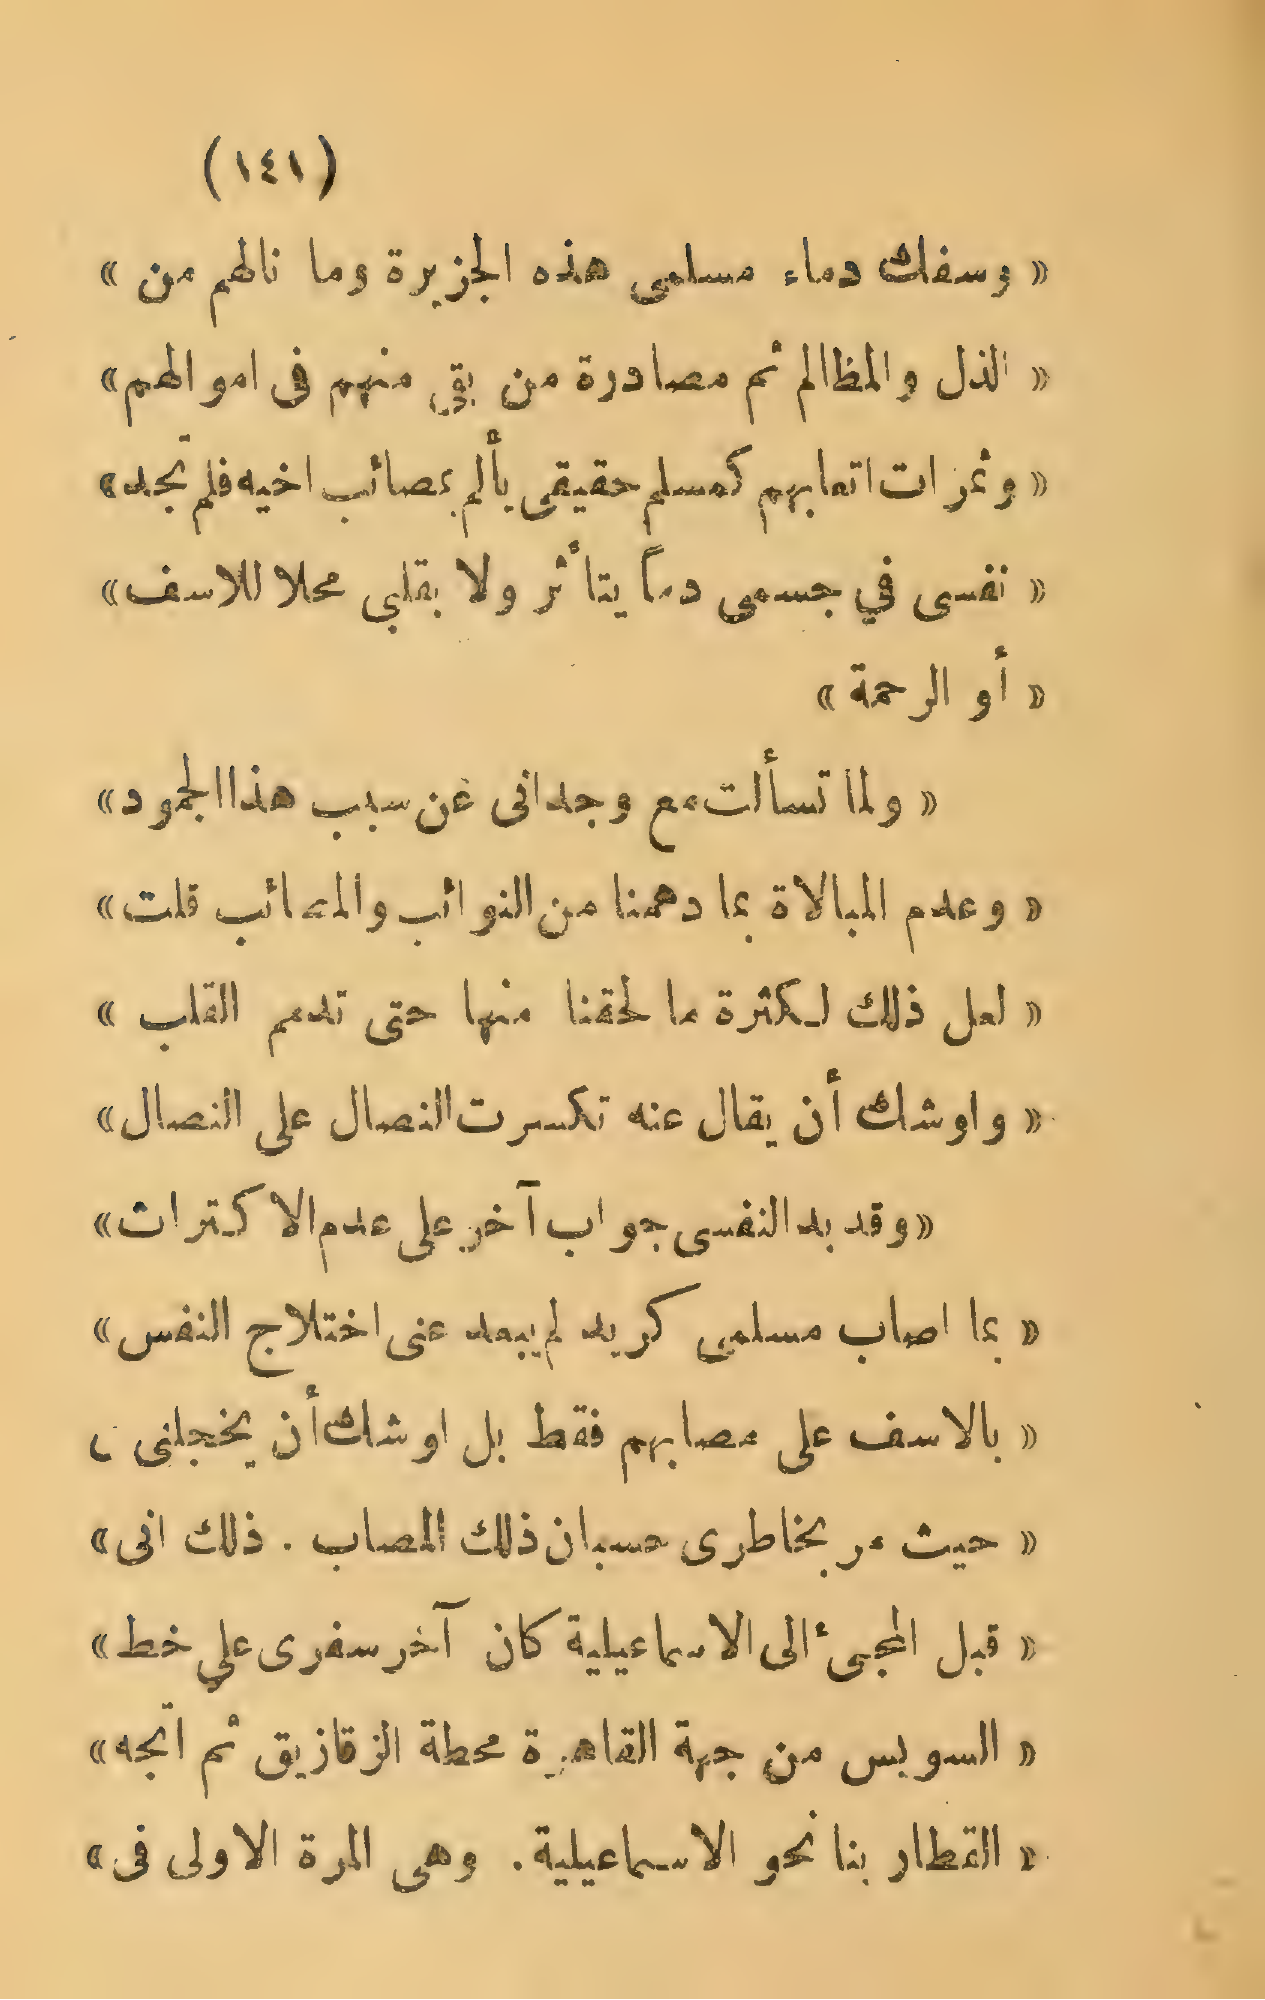 (١٤١)
« وسفك دماء مسلمى هذه الجزيرة وما نالهم من »
« الذل والمظالم ثم مصادرة من بقى منهم فى اموالهم »
« وثمرات اتعابهم كمسلم حقيقى يألم بمصائب اخيه فلم تجد »
« نفسى في جسمى دماً يتأثر ولا بقلبي محلا للاسف »
« أو الرحمة »
« ولما تسألت مع وجدانى عن سبب هذا الجمود »
« وعدم المبالاة بما دهمنا من النوائب والمصائب قلت »
« لعل ذلك لكثرة ما لحقنا منها حتى تدمم القلب »
« واوشك أن يقال عنه تكسرت النصال على النصال »
« وقد بدا لنفسى جواب آخر على عدم الاكتراث »
« بما اصاب مسلمى كريد لم يبعد عنى اختلاج النفس »
« بالاسف على مصابهم فقط بل اوشك أن يخجلنى »
« حيث مر بخاطرى حسبان ذلك المصاب . ذلك انى »
« قبل المجىء الى الاسماعيلية كان آخر سفرى علي خط »
« السويس من جهة القاهرة محطة الزقازيق ثم اتجه »
« القطار بنا نحو الاسماعيلية . وهى المرة الاولى فى »